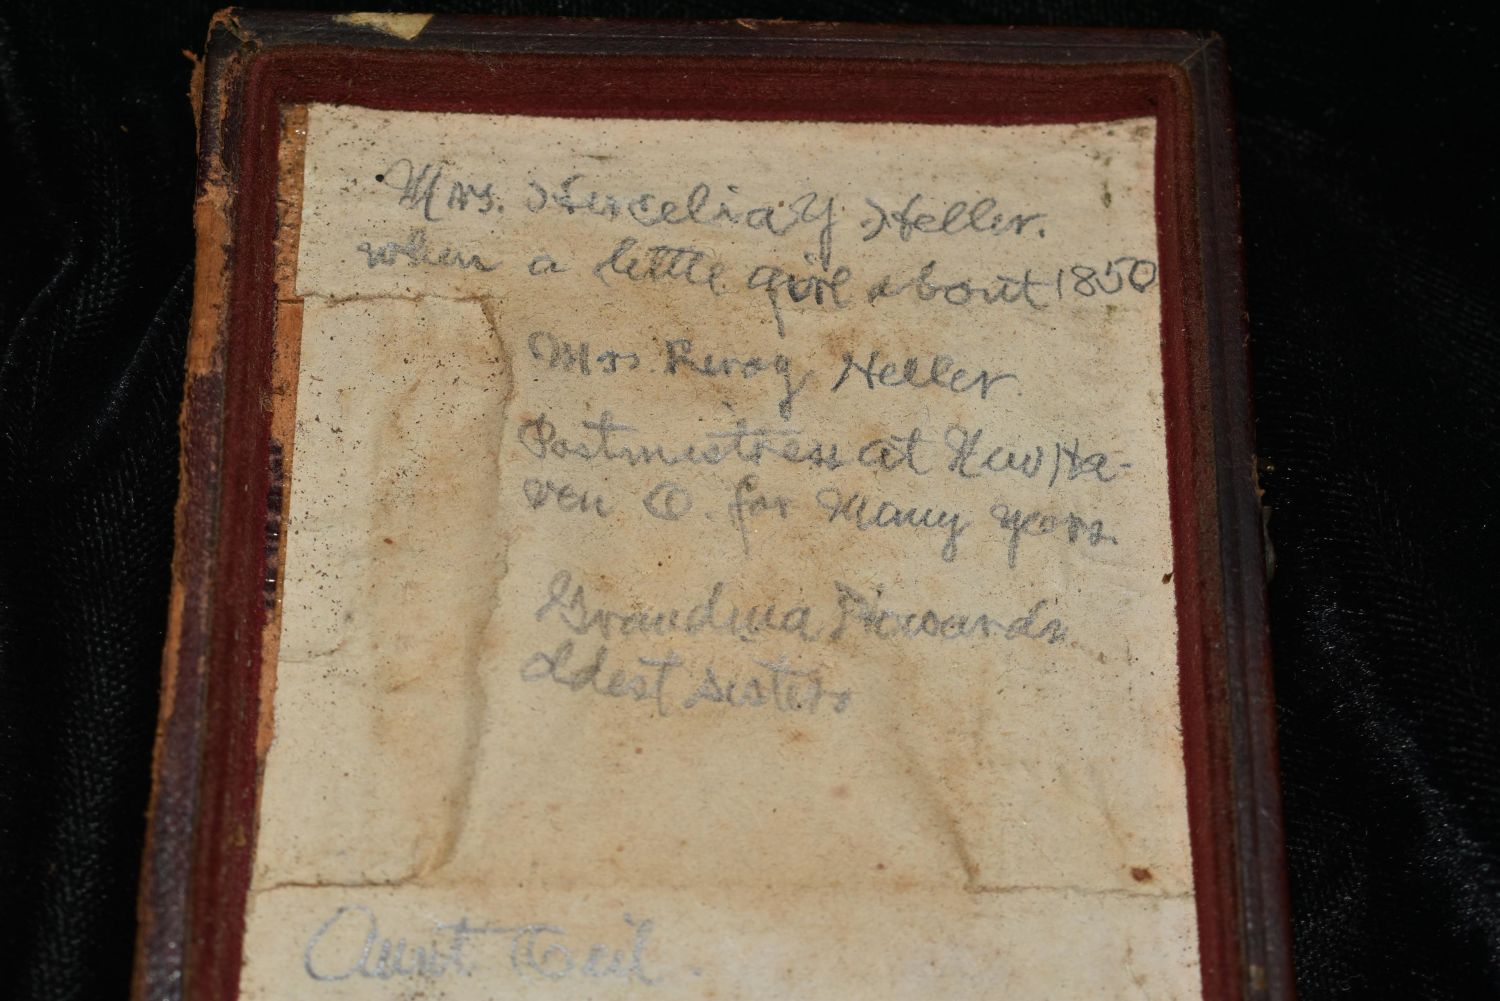 Mrs. Hercelia Y Heller.
when a little girl about 1850
Mrs. Heller.
Postmistress at New Ha-
ven O. for Many Years.
Grandma Howards
oldest sister
Aunt Ceil.